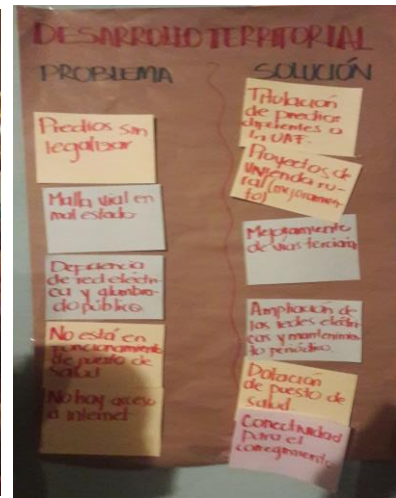 DESARROLLO TERRITORIAL
PROBLEMA
SOLUCIÓN
Predios sin
legalizar
Malla vial en
mal estado
Deficiencia
de red eléctri-
ca y alumbra-
do público
No está en
funcionamiento
de puesto de
salud
No hay acceso
a internet
Titulación
de predios
diferentes a
la UAF.
Proyectos de
vivienda ru-
ral (mejoramien-
to)
Mejoramiento
de vías terciaria
Ampliación de
las redes eléctri-
cas y mantenimien-
to periódico
Dotación
de puesto de
salud
Conectividad
para el
corregimiento